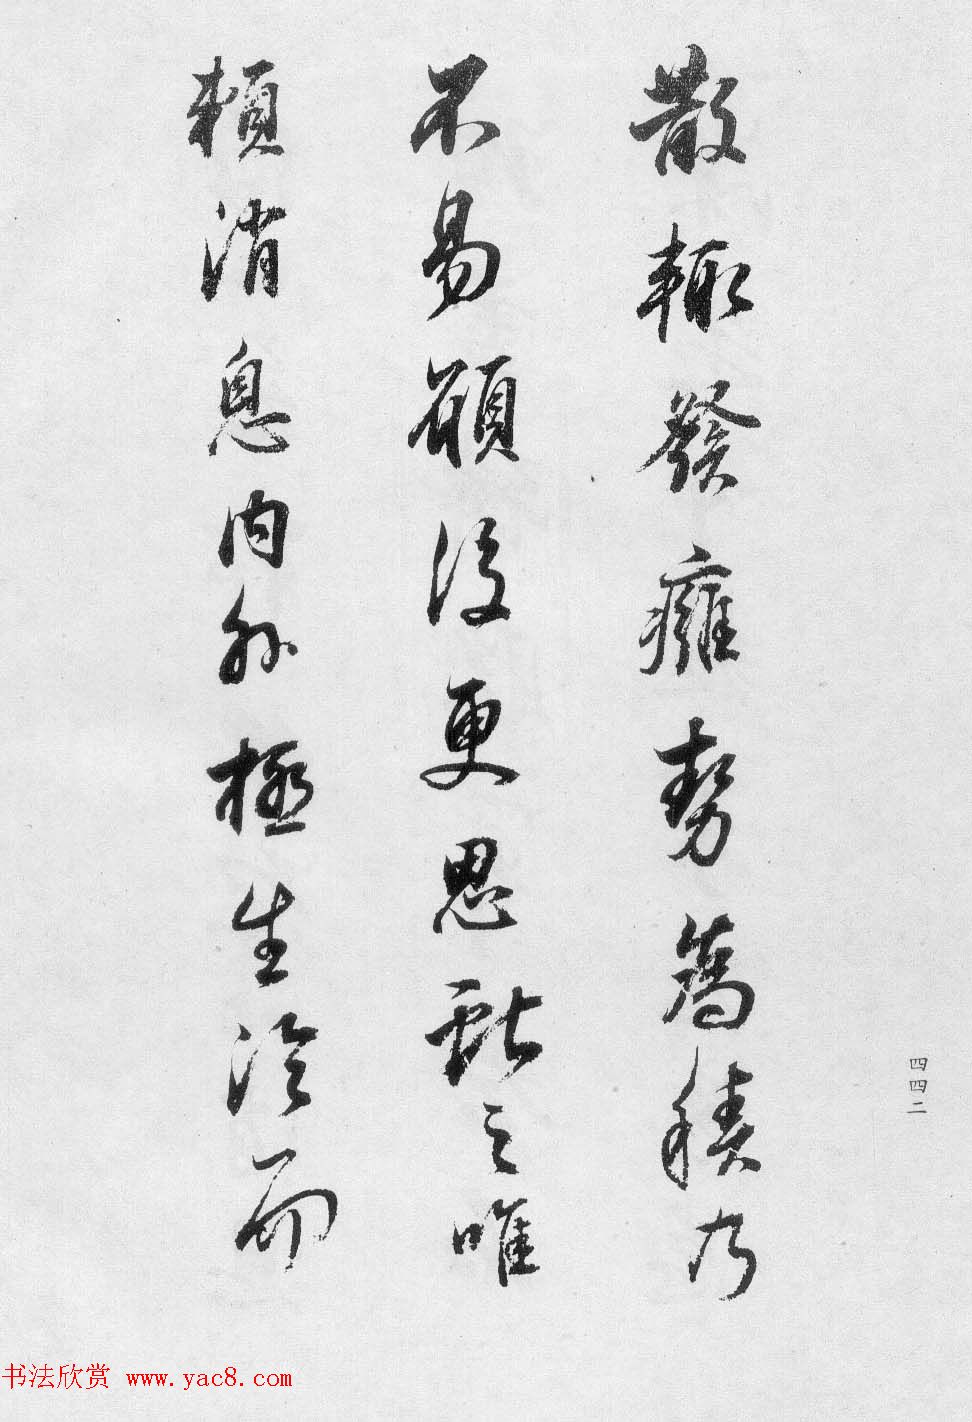 散輙發癰勢為積乃
不易願復更思獻之唯
賴消息內外極生冷而
四四二
书法欣赏 www.yac8.com